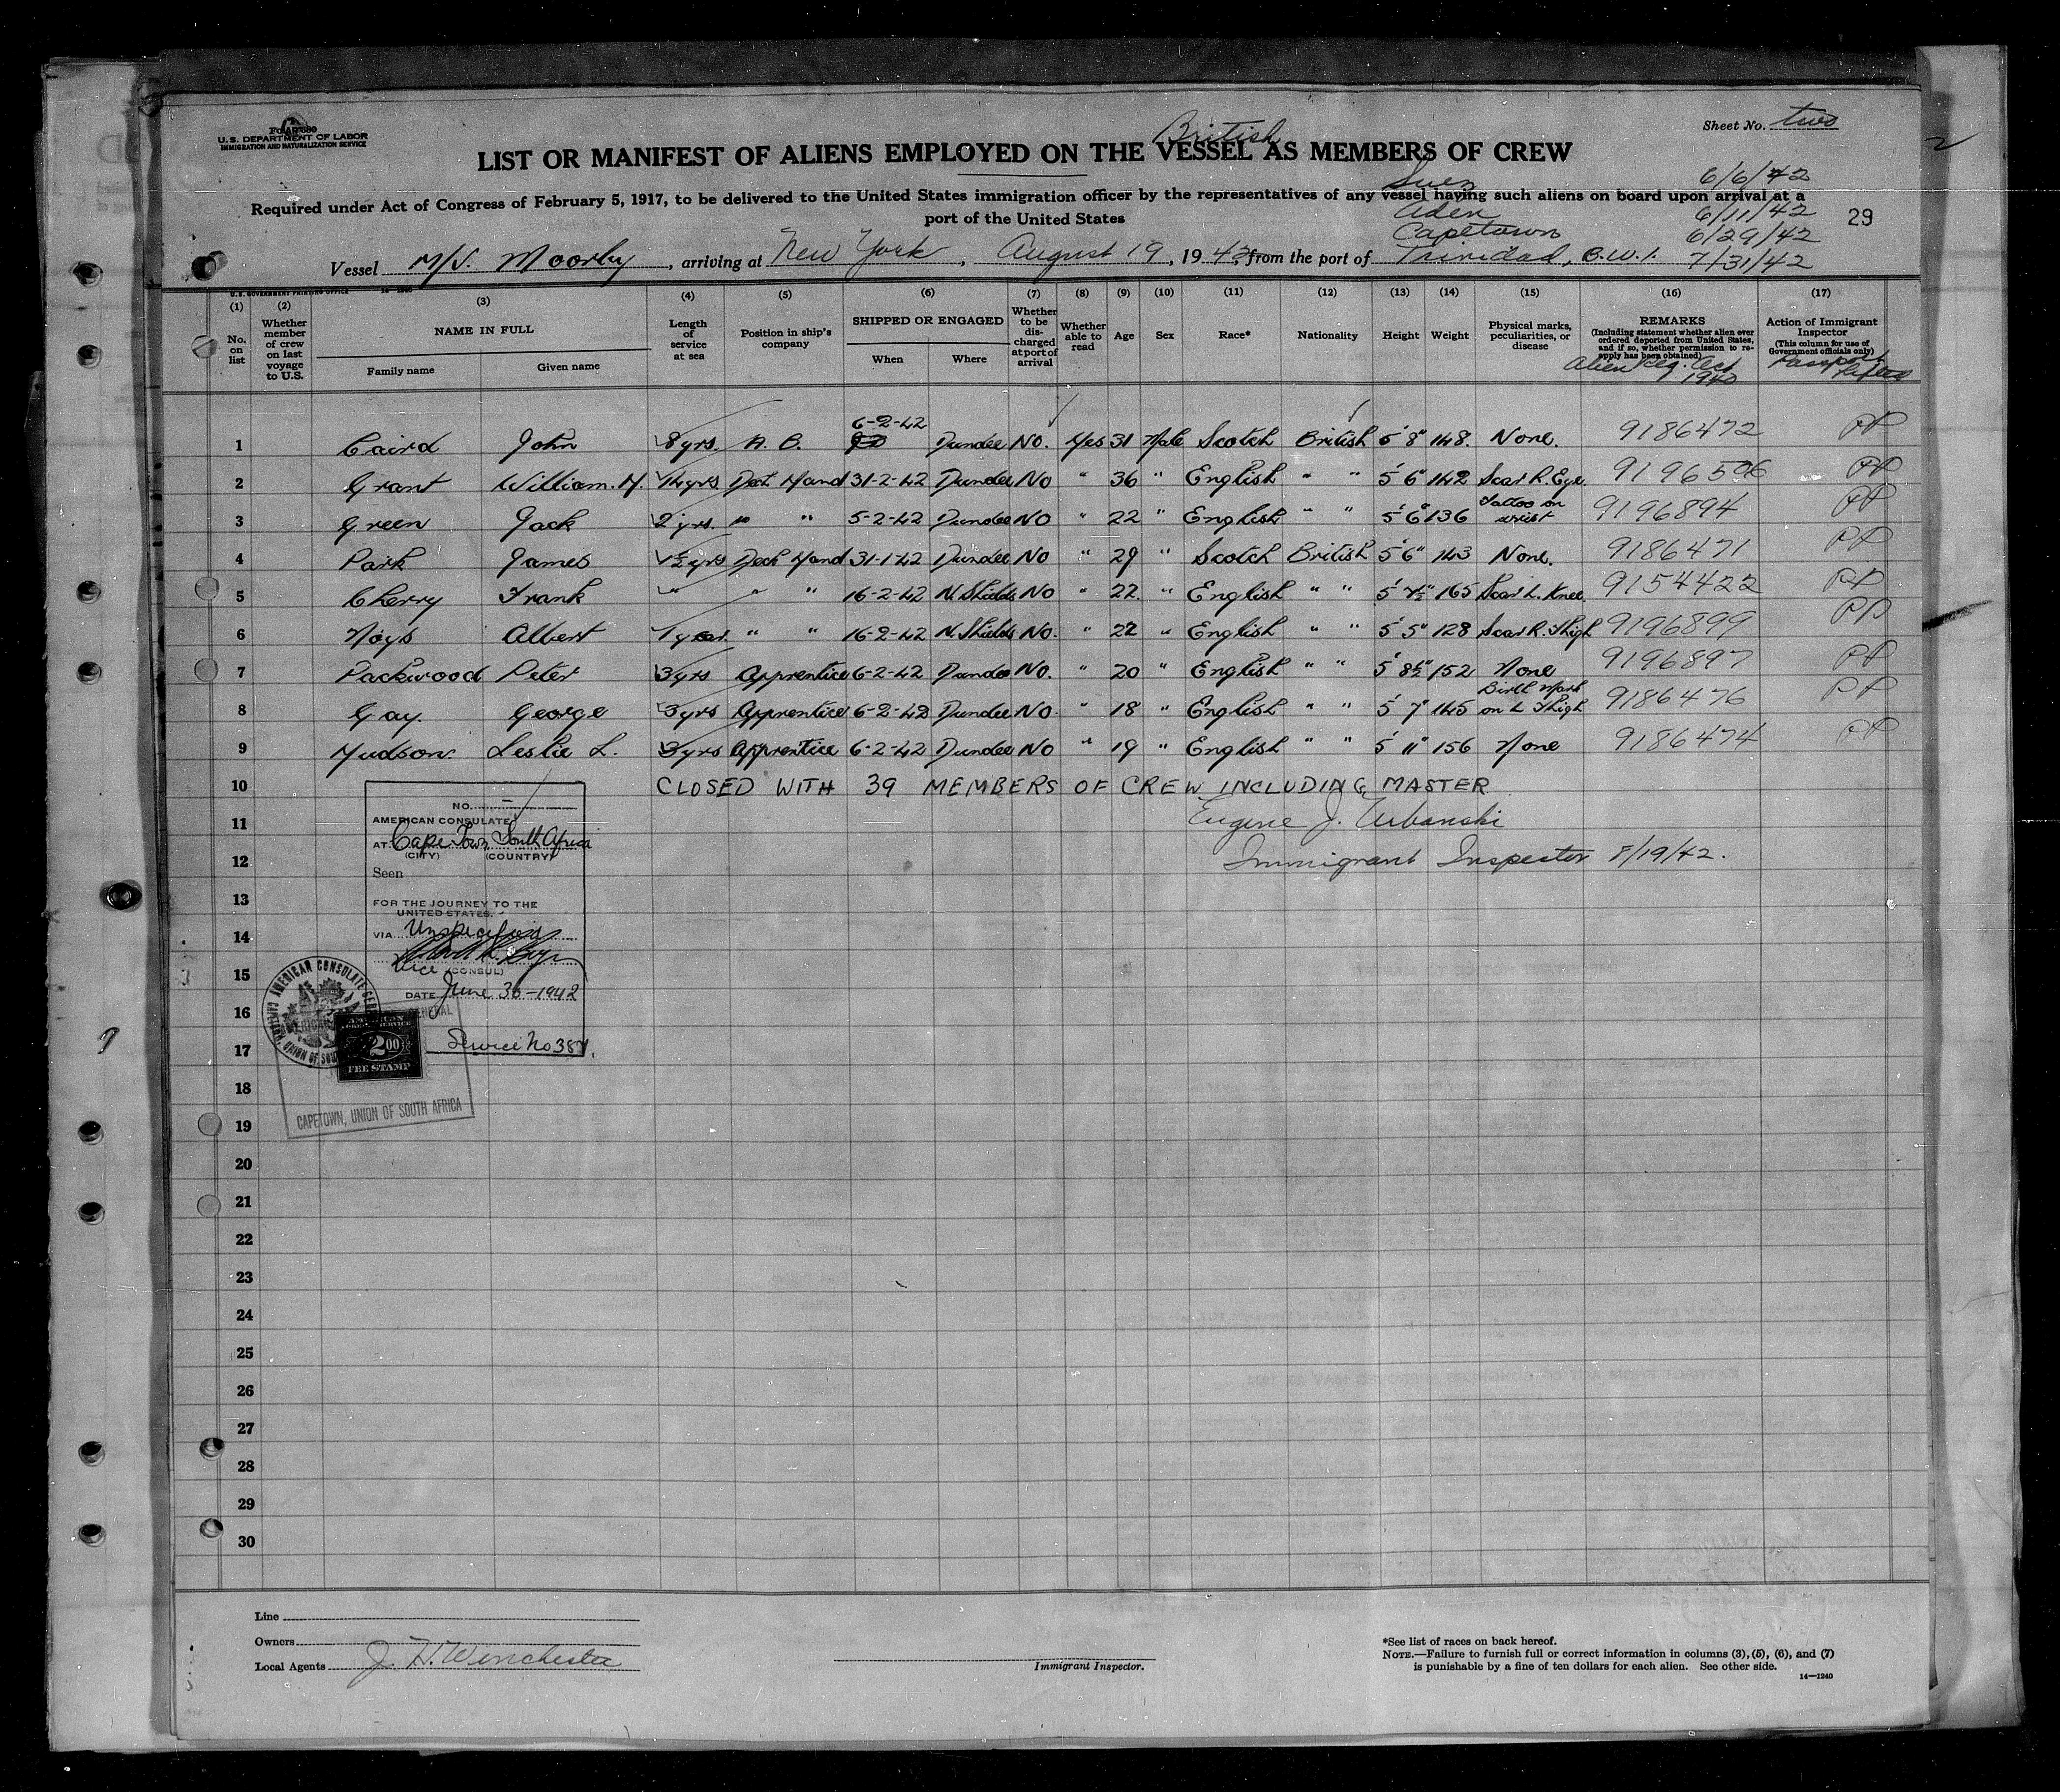 Form 680
U.S. DEPARTMENT OF LABOR
IMMIGRATION AND NATURALIZATION SERVICE
Sheet No. two
British
LIST OR MANIFEST OF ALIENS EMPLOYED ON THE VESSEL AS MEMBERS OF CREW
Suez 6/6/42
Required under Act of Congress of February 5, 1917, to be delivered to the United States immigration officer by the representatives of any vessel having such aliens on board upon arrival at a
port of the United States
Aden 6/11/42
29
Capetown 6/29/42
Vessel M/V. Moorby, arriving at New York, August 19, 1942, from the port of Trinidad, B.W.I. 7/31/42
U.S. GOVERNMENT PRINTING OFFICE
(1) (2) (3) (4) (5) (6) (7) (8) (9) (10) (11) (12) (13) (14) (15) (16) (17)
No. on list
Whether member of crew on last voyage to U.S.
NAME IN FULL
Family name Given name
Length of service at sea
Position in ship's company
SHIPPED OR ENGAGED
When Where
Whether to be discharged at port of arrival
Whether able to read
Age
Sex
Race*
Nationality
Height
Weight
Physical marks, peculiarities, or disease
REMARKS
(Including statement whether alien ever ordered deported from United States, and if so, whether permission to reapply has been obtained)
Alien Reg. Act 1940
Action of Immigrant Inspector
(This column for use of Government officials only)
Passport
1 Caird John 8yrs. A. B. 6-2-42 Dundee No. Yes 31 Male Scotch British 5' 8" 148. None. 9186472 PP
2 Grant William. H. 14yrs Deck Hand 31-2-42 Dundee No " 36 " English " " 5' 6" 142 Scar R. Eye. 9196506 PP
3 Green Jack 2yrs. " " 5-2-42 Dundee No " 22 " English " " 5' 6" 136 Tattoo on wrist 9196894 PP
4 Park James 1½yrs Deck Hand 31-1-42 Dundee No " 29 " Scotch British 5' 6" 143 None. 9186471 PP
5 Cherry Frank " " " 16-2-42 N. Shields No " 22. " English " " 5' 7½" 165 Scar L. Knee. 9154422 PP
6 Noys Albert 1 year. " " 16-2-42 N. Shields No. " 22 " English " " 5' 5" 128 Scar R. Thigh 9196899 PP
7 Packwood Peter 3yrs Apprentice 6-2-42 Dundee No. " 20 " English " " 5' 8½" 152 None 9196897 PP
8 Gay. George 3yrs Apprentice 6-2-42 Dundee No. " 18 " English " " 5' 7" 145 Birth Mark on L Thigh 9186476 PP
9 Hudson. Leslie L. 3yrs Apprentice 6-2-42 Dundee No " 19 " English " " 5' 11" 156 None 9186474 PP
10 CLOSED WITH 39 MEMBERS OF CREW INCLUDING MASTER
11 Eugene J. Urbanski
12 Immigrant Inspector 8/19/42.
13
14
15
16
17
18
19
20
21
22
23
24
25
26
27
28
29
30
NO. –
AMERICAN CONSULATE
AT Cape Town, South Africa
(CITY) (COUNTRY)
Seen
FOR THE JOURNEY TO THE
UNITED STATES.
VIA Unspecified
Vice (CONSUL)
DATE June 30-1942
Service No 387.
AMERICAN CONSULATE GENERAL
CAPETOWN, UNION OF SOUTH
$2.00
FEE STAMP
CAPETOWN, UNION OF SOUTH AFRICA
Line
Owners
Local Agents J. H. Winchester
Immigrant Inspector.
*See list of races on back hereof.
NOTE.—Failure to furnish full or correct information in columns (3), (5), (6), and (7)
is punishable by a fine of ten dollars for each alien. See other side.
14—1240